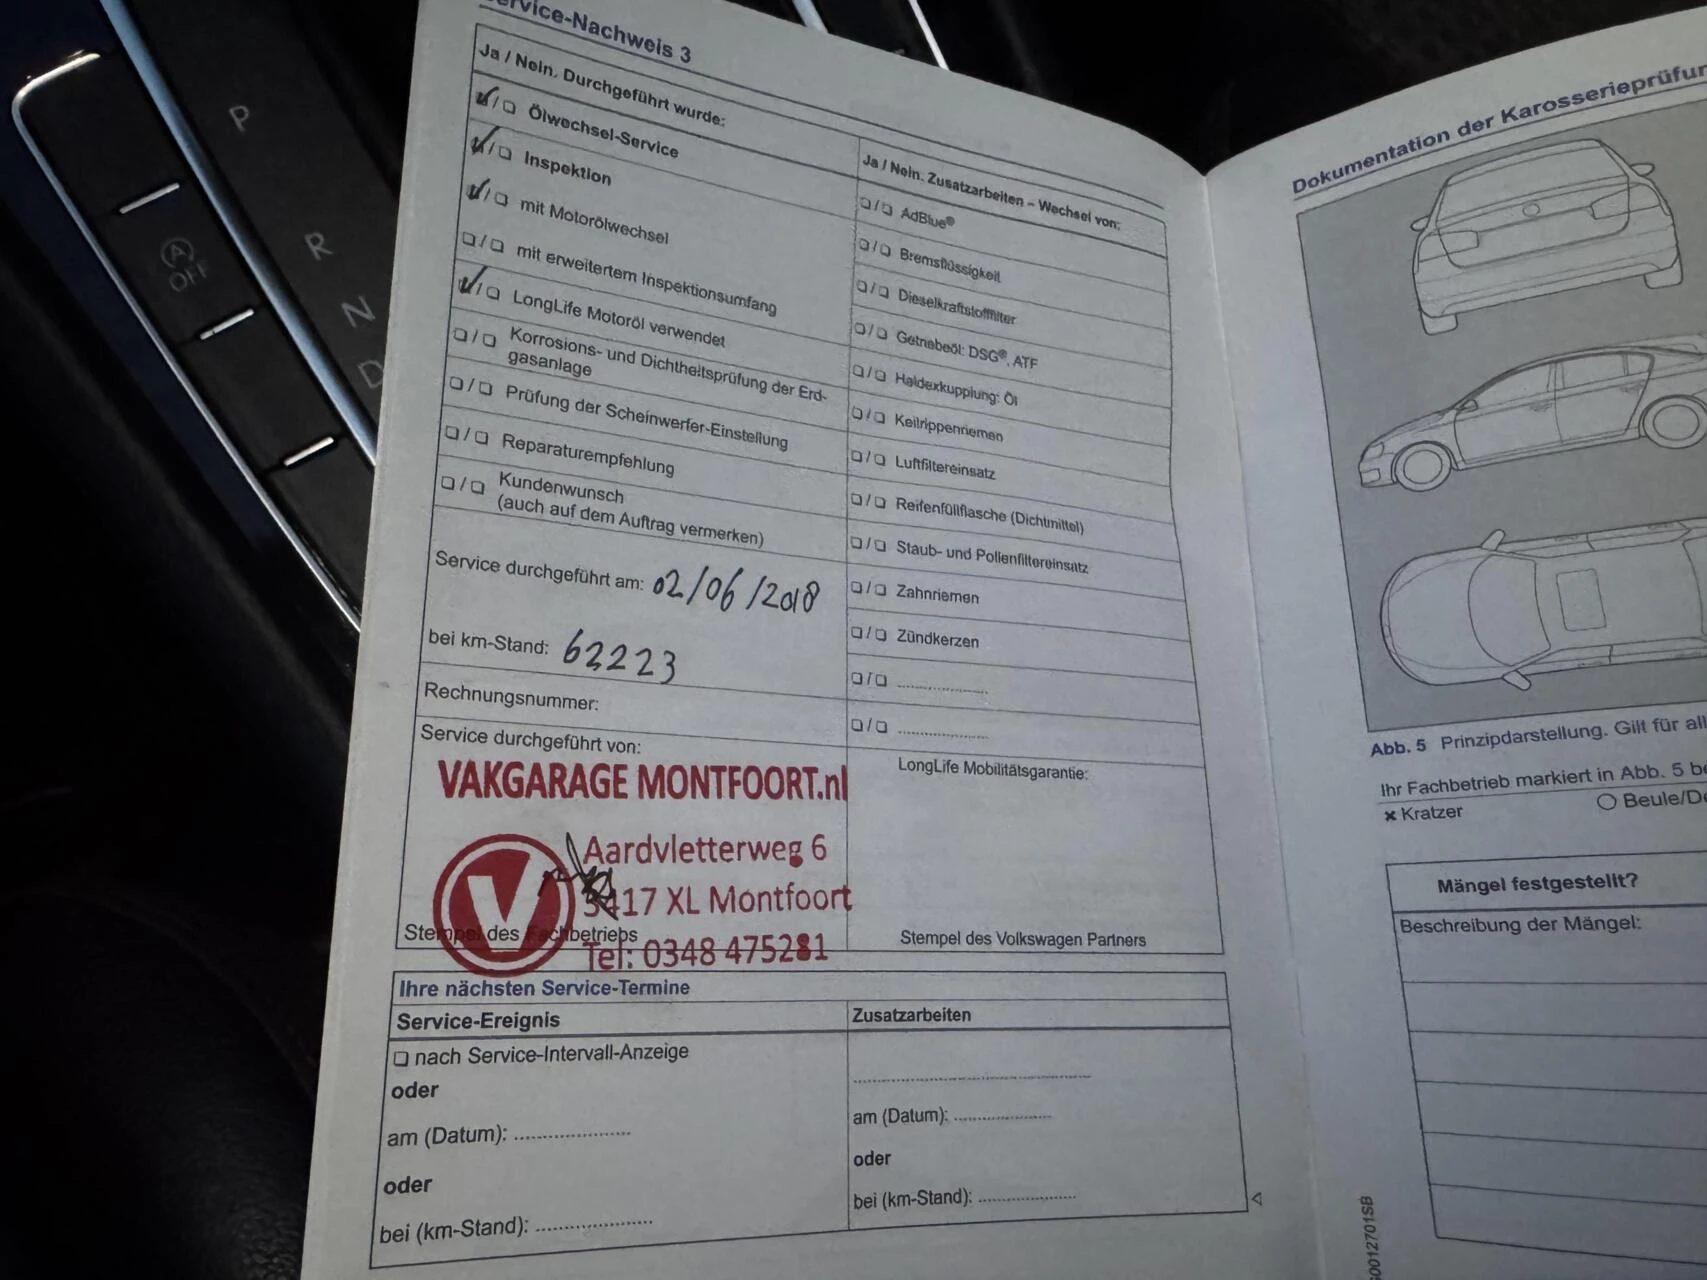 P
R
N
D
A
OFF
Service-Nachweis 3
Ja / Nein. Durchgeführt wurde:
Ölwechsel-Service
Inspektion
mit Motorölwechsel
mit erweitertem Inspektionsumfang
LongLife Motoröl verwendet
Korrosions- und Dichtheitsprüfung der Erd-
gasanlage
Prüfung der Scheinwerfer-Einstellung
Reparaturempfehlung
Kundenwunsch
(auch auf dem Auftrag vermerken)
Service durchgeführt am: 02/06/2018
bei km-Stand: 62223
Rechnungsnummer:
Service durchgeführt von:
VAKGARAGE MONTFOORT.nl
V
Aardvletterweg 6
3417 XL Montfoort
Tel: 0348 475281
Stempel des Fachbetriebs
Ja / Nein. Zusatzarbeiten – Wechsel von:
AdBlue®
Bremsflüssigkeit
Dieselkraftstofffilter
Getriebeöl: DSG®, ATF
Haldexkupplung: Öl
Keilrippenriemen
Luftfiltereinsatz
Reifenfüllflasche (Dichtmittel)
Staub- und Pollenfiltereinsatz
Zahnriemen
Zündkerzen
LongLife Mobilitätsgarantie:
Stempel des Volkswagen Partners
Ihre nächsten Service-Termine
Service-Ereignis
nach Service-Intervall-Anzeige
oder
am (Datum):
oder
bei (km-Stand):
Zusatzarbeiten
am (Datum):
oder
bei (km-Stand):
Dokumentation der Karosserieprüfun
Abb. 5 Prinzipdarstellung. Gilt für all
Ihr Fachbetrieb markiert in Abb. 5 be
× Kratzer
Beule/De
Mängel festgestellt?
Beschreibung der Mängel:
0012701SB